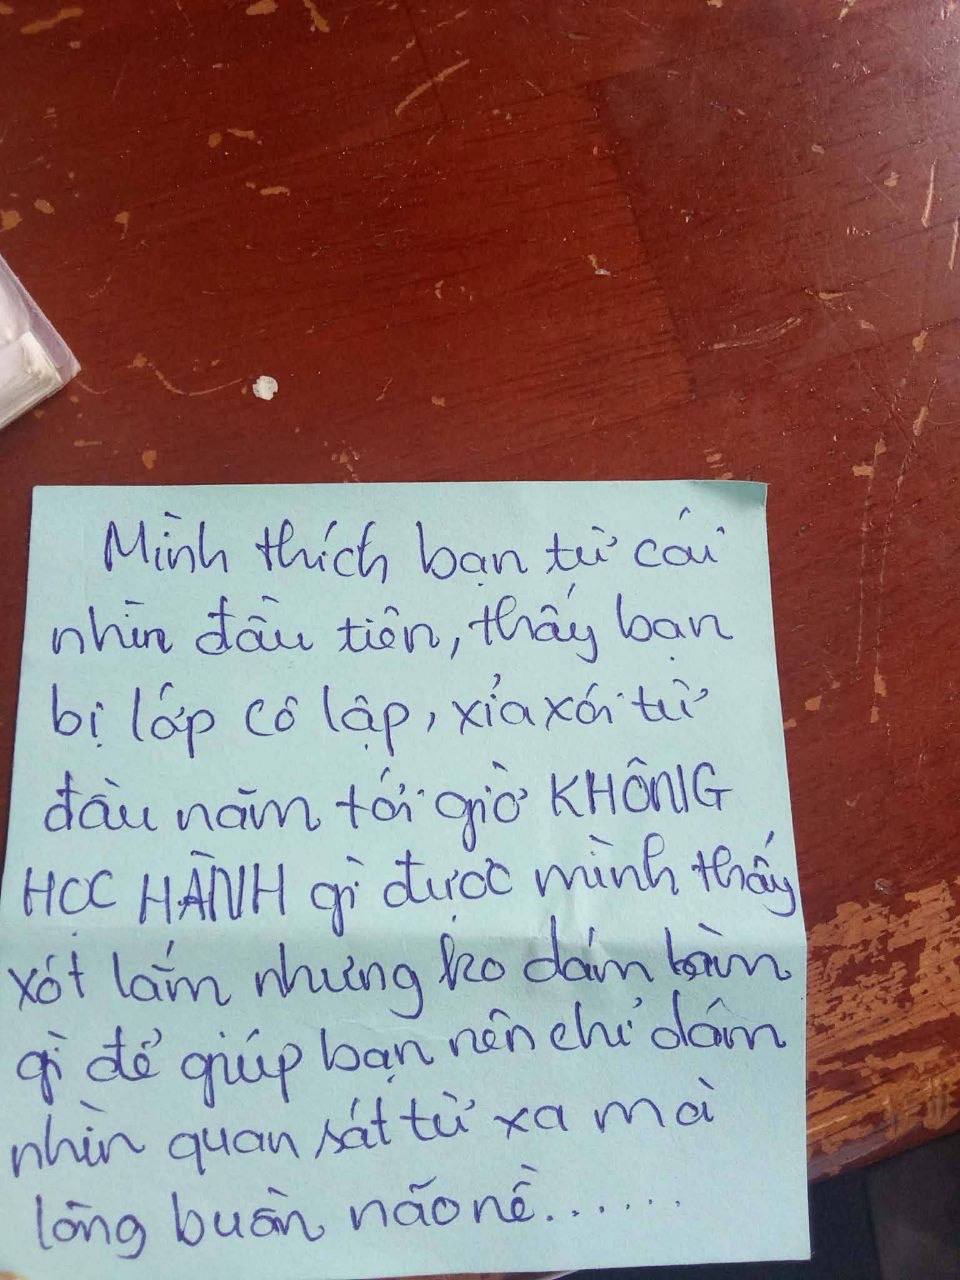 Mình thích bạn từ cái
nhìn đầu tiên, thấy bạn
bị lớp cô lập, xỉa xói từ
đầu năm tới giờ KHÔNG
HỌC HÀNH gì được mình thấy
xót lắm nhưng ko dám làm
gì để giúp bạn nên chỉ dám
nhìn quan sát từ xa mà
lòng buồn não nề......